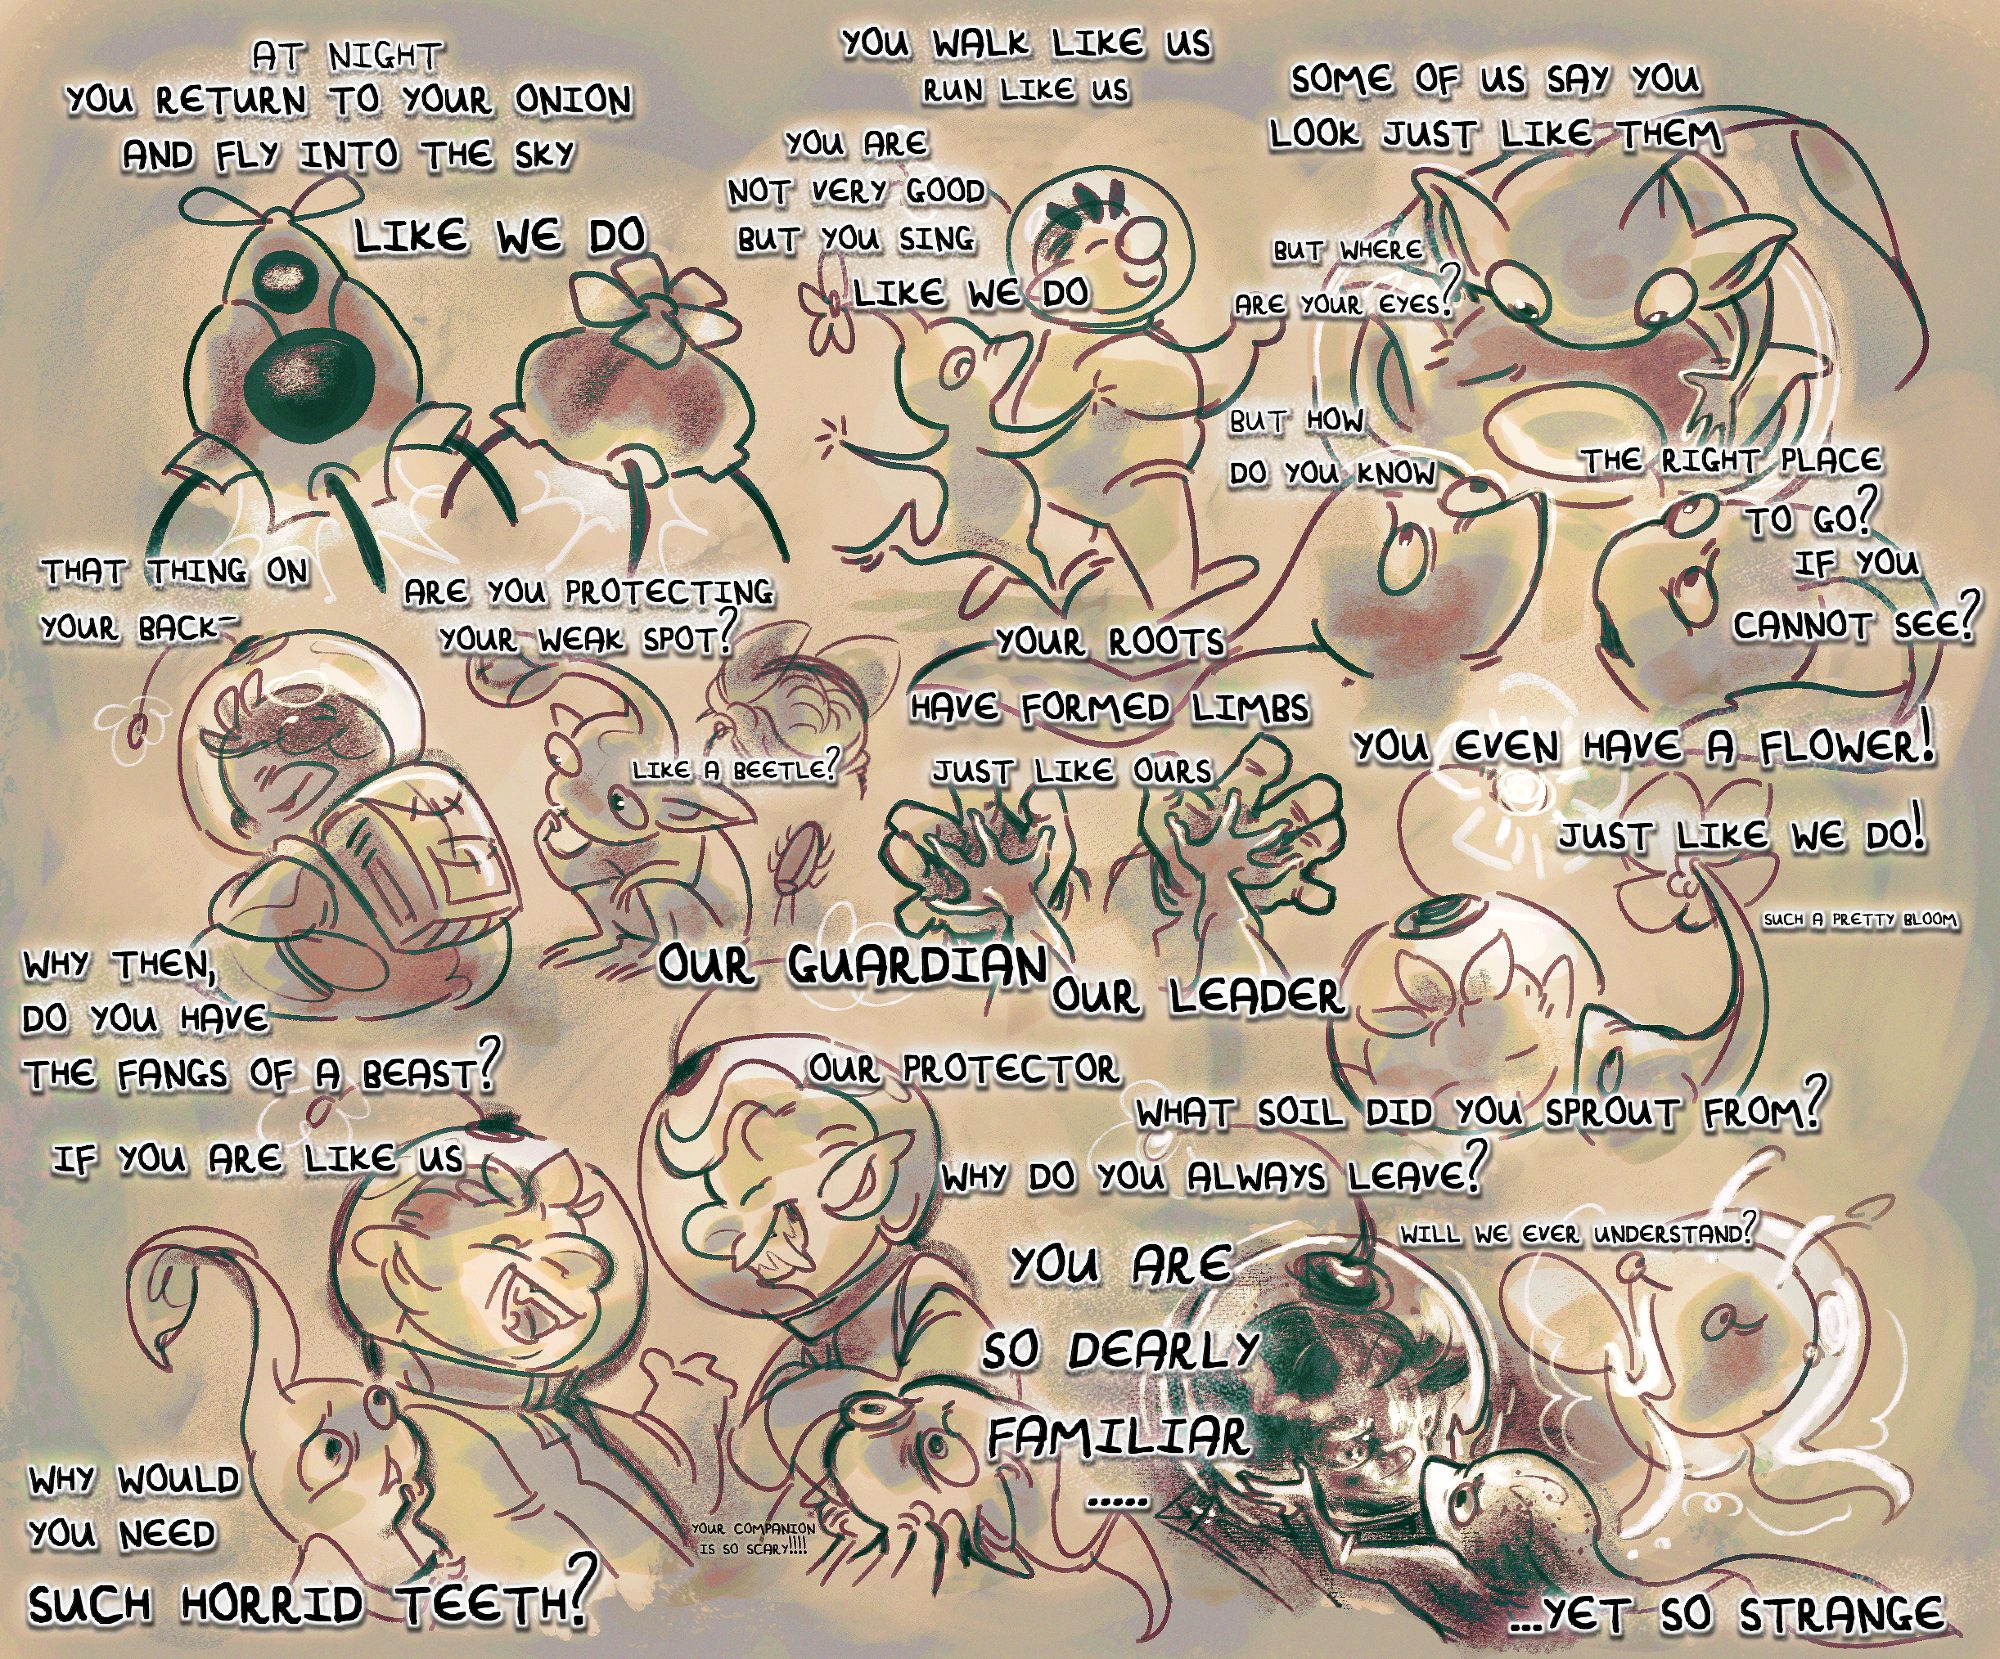 AT NIGHT
YOU RETURN TO YOUR ONION
AND FLY INTO THE SKY
LIKE WE DO
YOU WALK LIKE US
RUN LIKE US
YOU ARE
NOT VERY GOOD
BUT YOU SING
LIKE WE DO
SOME OF US SAY YOU
LOOK JUST LIKE THEM
BUT WHERE
ARE YOUR EYES?
BUT HOW
DO YOU KNOW
THE RIGHT PLACE
TO GO?
IF YOU
CANNOT SEE?
THAT THING ON
YOUR BACK-
ARE YOU PROTECTING
YOUR WEAK SPOT?
LIKE A BEETLE?
YOUR ROOTS
HAVE FORMED LIMBS
JUST LIKE OURS
YOU EVEN HAVE A FLOWER!
JUST LIKE WE DO!
SUCH A PRETTY BLOOM
WHY THEN,
DO YOU HAVE
THE FANGS OF A BEAST?
IF YOU ARE LIKE US
WHY WOULD
YOU NEED
SUCH HORRID TEETH?
YOUR COMPANION
IS SO SCARY!!!!
OUR GUARDIAN
OUR LEADER
OUR PROTECTOR
WHAT SOIL DID YOU SPROUT FROM?
WHY DO YOU ALWAYS LEAVE?
WILL WE EVER UNDERSTAND?
YOU ARE
SO DEARLY
FAMILIAR
.....
...YET SO STRANGE